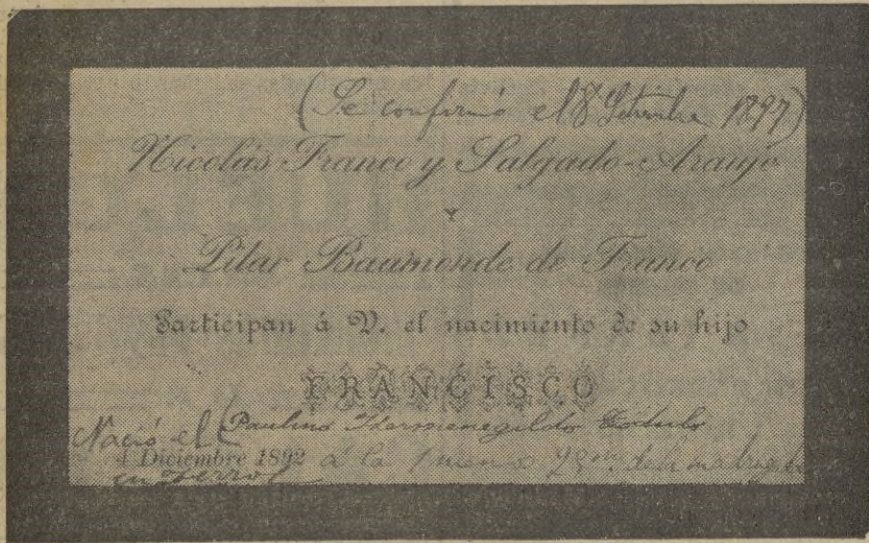 (Se confirmó el 8 Setiembre 1897)
Nicolás Franco y Salgado-Araujo
Y
Pilar Baamonde de Franco
Participan á V. el nacimiento de su hijo
FRANCISCO
(Paulino Hermenegildo Teódulo
Nació el
4 Diciembre 1892 á la 1 menos de la madrugada
en Ferrol